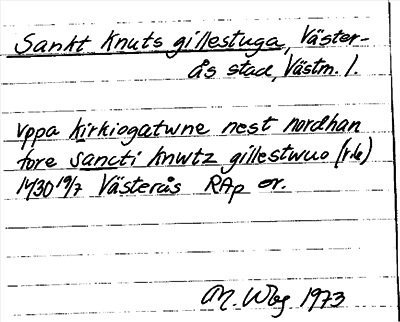 Sankt Knuts gillestuga, Väster-
ås stad, Västm. l.
vppa kirkiogatwne nest nordhan
fore sancti knwtz gillestwuo (rk)
1430 19/7 Västerås RAp or.
1973